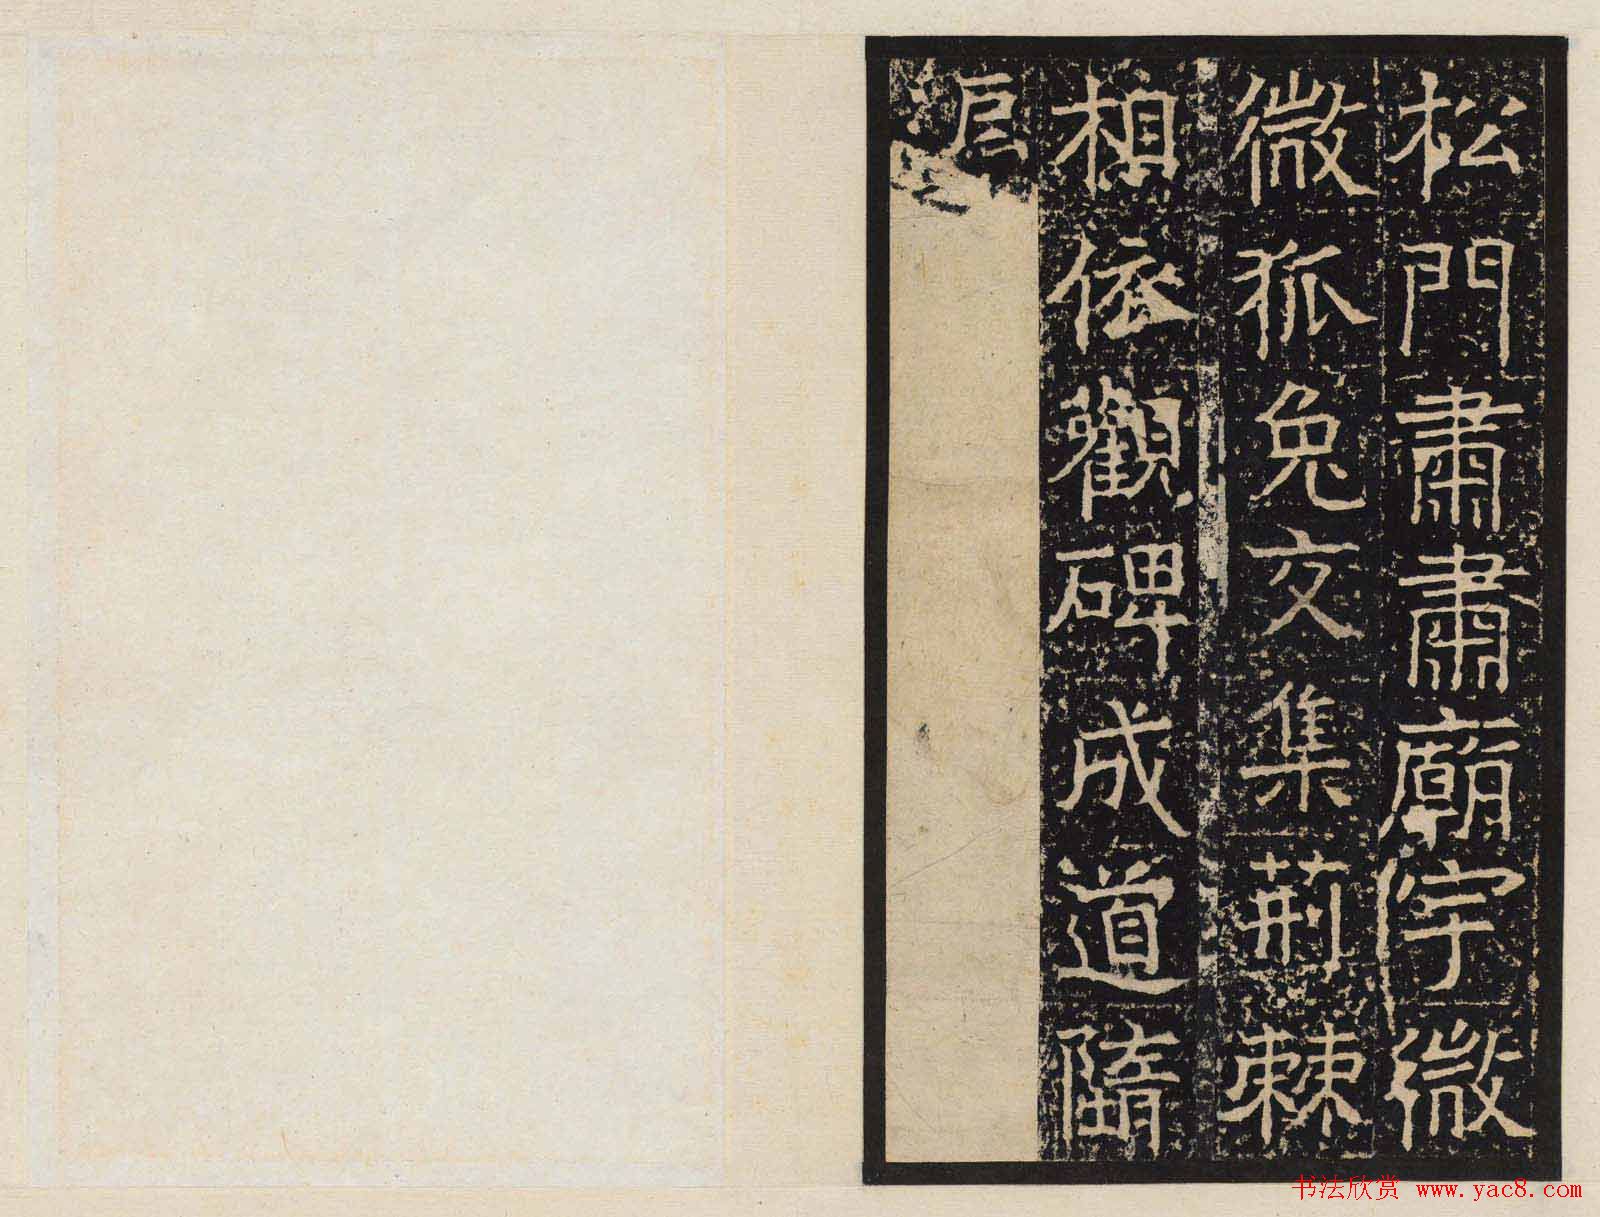 松門肅肅廟宇微
微狐兔交集荊棘
相依觀碑成道隋
书法欣赏 www.yac8.com